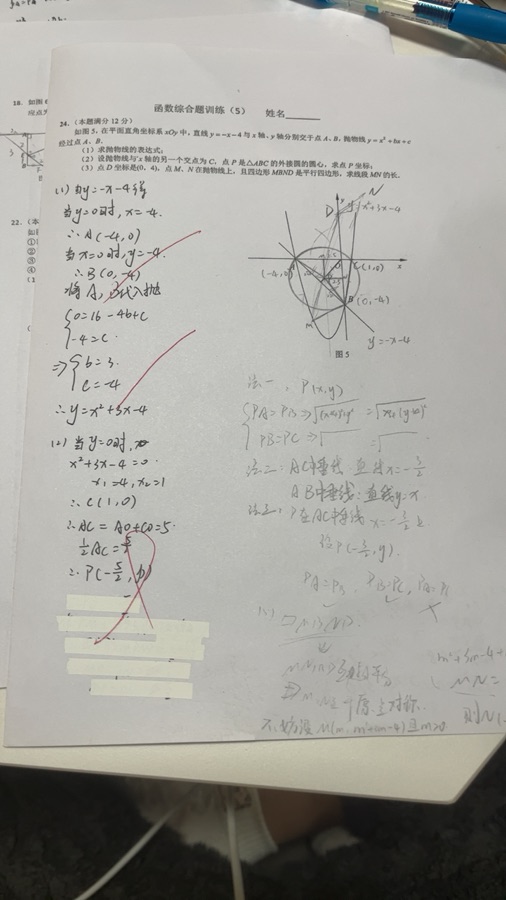 函数综合题训练（5） 姓名
24.（本题满分 12 分）
如图 5，在平面直角坐标系 xOy 中，直线 y=-x-4 与 x 轴、y 轴分别交于点 A、B，抛物线 y=x²+bx+c
经过点 A、B.
（1）求抛物线的表达式；
（2）设抛物线与 x 轴的另一个交点为 C，点 P 是△ABC 的外接圆的圆心，求点 P 坐标；
（3）点 D 坐标是(0，4)，点 M、N 在抛物线上，且四边形 MBND 是平行四边形，求线段 MN 的长.
18. 如图
22.（本
①
②
③
④
(1) 由y=-x-4得
当y=0时, x=-4.
∴A(-4,0)
当x=0时, y=-4.
∴B(0,-4)
将A, B代入抛
0=16-4b+c
-4=c
⇒ b=3
c=-4
∴ y=x²+3x-4
(2) 当y=0时,
x²+3x-4=0
x₁=4, x₂=1
∴C(1,0)
∴AC=AO+CO=5
½AC=5/2
∴P(-5/2, b)
D
N
y=x²+3x-4
(-4,0)
A
C(1,0)
x
B(0,-4)
M
y=-x-4
图 5
法一, P(x,y)
PA=PB⇒
PB=PC⇒
法二: AC中垂线 直线x=-3/2
AB中垂线: 直线y=x
法三: P在AC中垂线 x=-3/2上
P(-3/2, y).
PA=PB, PB=PC, PA=PC
MN=
不妨设M(m, m²+3m-4)且m>0
则N(